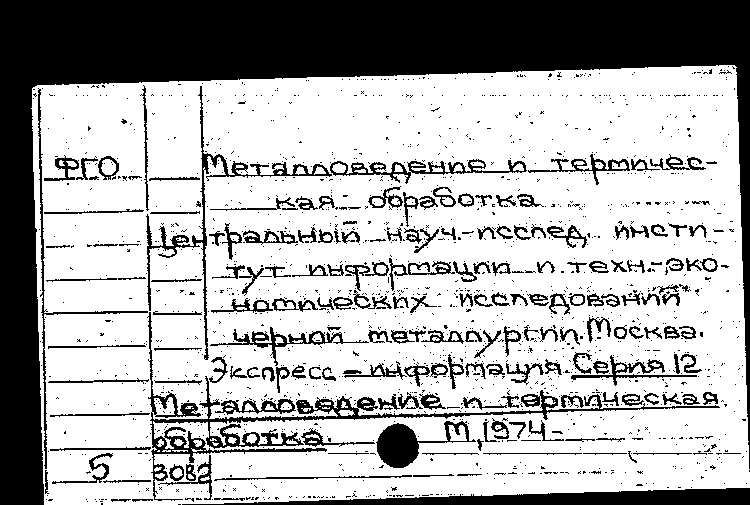 ФГО Металловедение и термичес-
кая обработка
Центральный науч.-исслед. инсти-
тут информации и техн.-эко-
номических исследований
черной металлургии. Москва.
Экспресс-информация. Серия 12
Металловедение и термическая
обработка. М, 1974-
5 3082